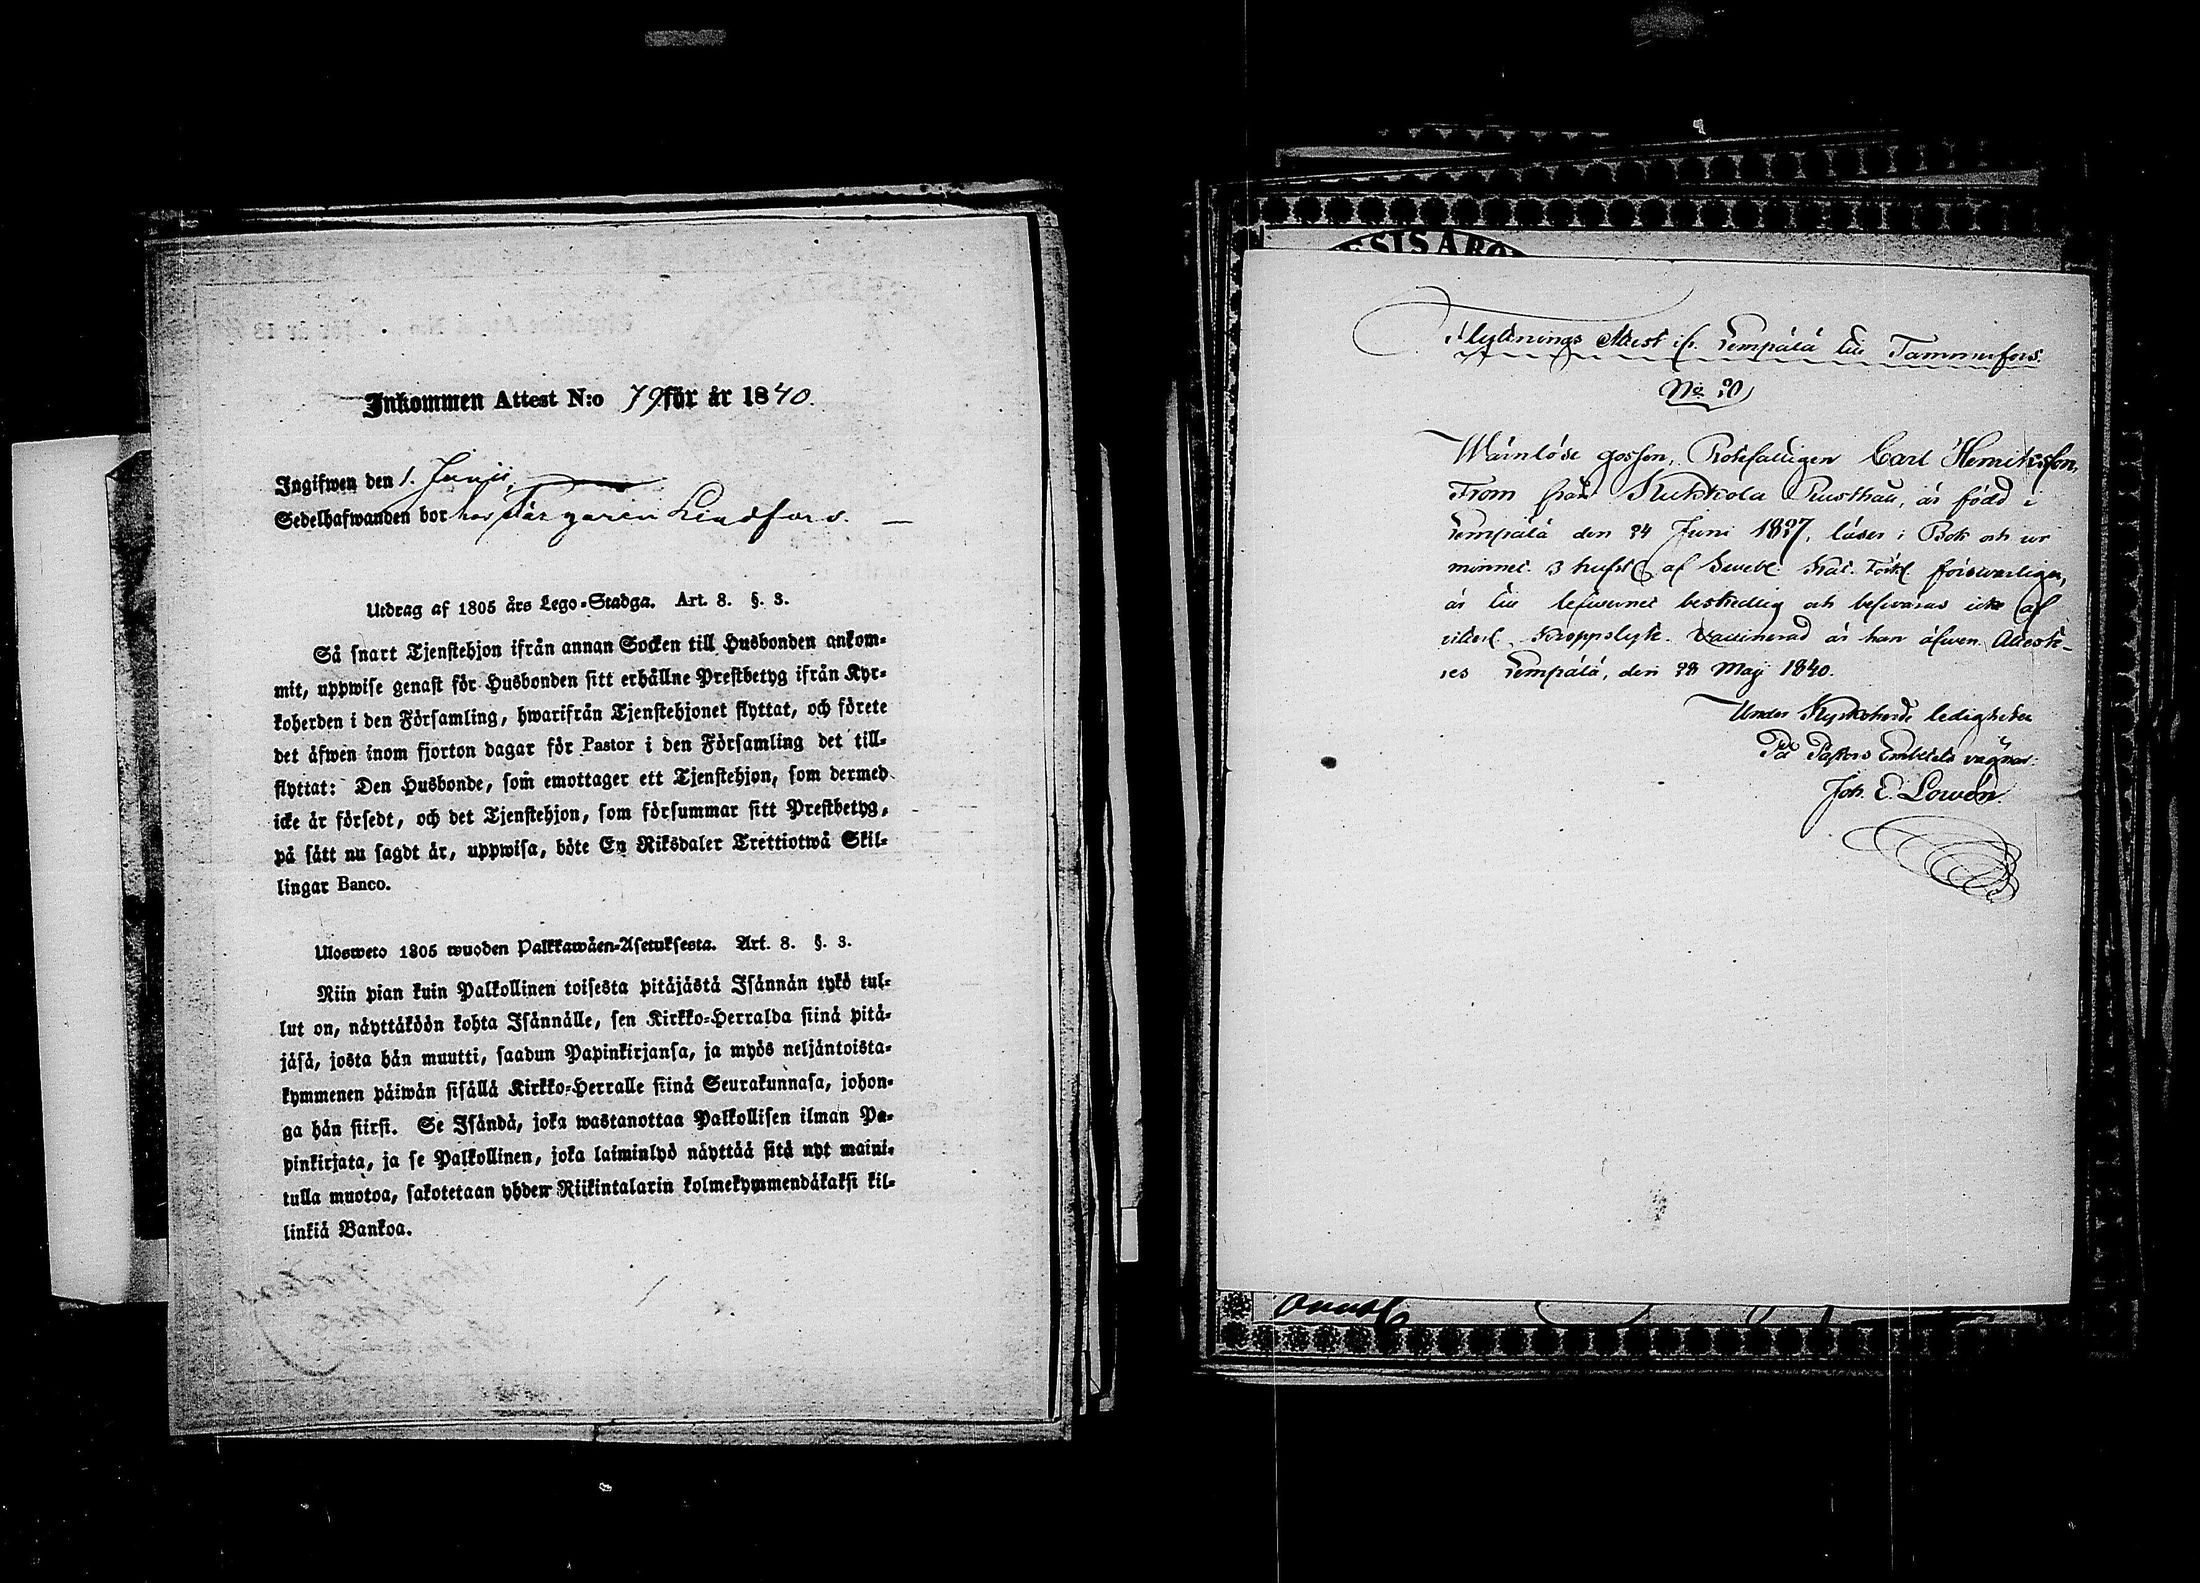 Inkommen Attest N:o 79 för år 1840.
Ingifwen den 1. Junii,
Sedelhafwanden bor hos Färgaren Lindfors.
Utdrag af 1805 års Lego-Stadga. Art. 8. §. 3.
Så snart Tjenstehjon ifrån annan Socken till Husbonden ankom-
mit, uppwise genast för Husbonden sitt erhållne Prestbetyg ifrån Kyr-
koherden i den Församling, hwarifrån Tjenstehjonet flyttat, och förete
det äfwen inom fjorton dagar för Pastor i den Församling det till-
flyttat: Den Husbonde, som emottager ett Tjenstehjon, som dermed
icke är försedt, och det Tjenstehjon, som försummar sitt Prestbetyg,
på sätt nu sagdt är, uppwisa, böte En Riksdaler Trettiotwå Skil-
lingar Banco.
Ulosweto 1805 wuoden Palkkawäen-Asetuksesta. Art. 8. §. 3.
Niin pian kuin Palkollinen toisesta pitäjästä Isännän tykö tul-
lut on, näyttäköön kohta Isännälle, sen Kirkko-Herralda siinä pitä-
jäsä, josta hän muutti, saadun Papinkirjansa, ja myös neljäntoista-
kymmenen päiwän sisällä Kirkko-Herralle siinä Seurakunnasa, johon-
ga hän siirsi. Se Isändä, joka wastanottaa Palkollisen ilman Pa-
pinkirjata, ja se Palkollinen, joka laiminlyö näyttää sitä nyt maini-
tulla muotoa, sakotetaan yhden Riikintalarin kolmekymmendäkaksi kil-
linkiä Bankoa.
SISARO
Flyttnings Attest ifr. Lempälä till Tammerfors.
No 20
Wärnlöse gossen, Rotefattigen Carl Henriksson
From från Kukkola Rusthåll, är född i
Lempälä den 24 Juni 1827, läser i Bok och ur
minnet 3 hufst. af Svebel. Kat. Förkl. försvarligen,
är till lefvernet beskedlig och besväras icke af
vitterl. Kroppslyte. Vaccinerad är han äfwen. Atteste-
res Lempälä, den 28 Maji 1840.
Under Kyrkoherde ledigheten
På Pastors Embetets vägnar:
Joh. E. Lowén.